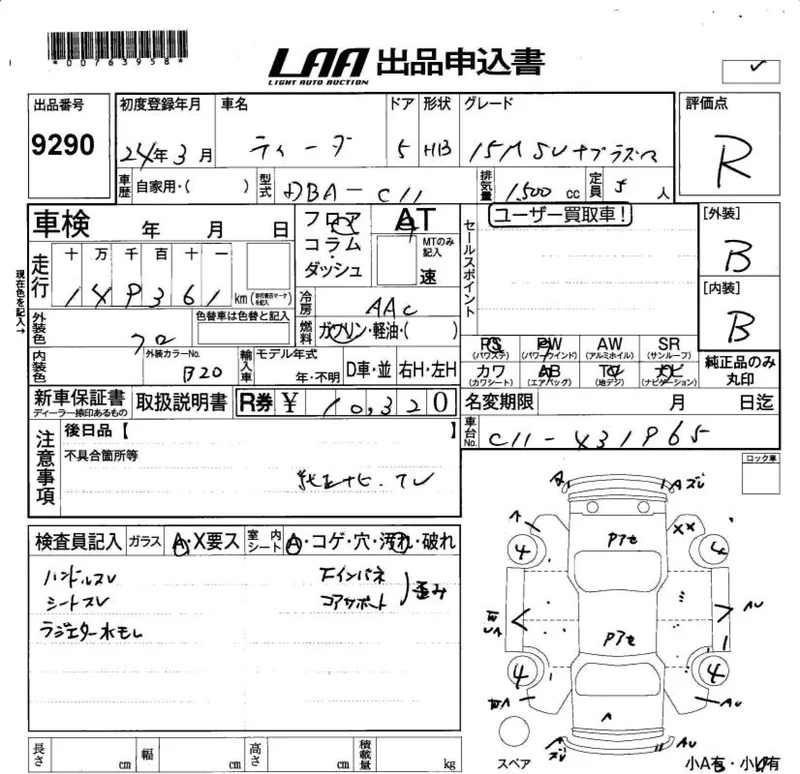 *00763958*
LAA 出品申込書
LIGHT AUTO AUCTION
出品番号
9290
初度登録年月
24年3月
車名
ティーダ
ドア
5
形状
HB
グレード
15M SVナプラズマ
評価点
R
車歴 自家用・( )
型式 DBA-C11
排気量 1500 cc
定員 5 人
車検 年 月 日
フロア
コラム
・
ダッシュ
AT
MTのみ記入
速
ユーザー買取車!
セールスポイント
[外装]
B
[内装]
B
現在色を記入→
走行
十 万 千 百 十 一
149361 km
冷房 AAC
燃料 ガソリン・軽油・( )
外装色 クロ
色替車は色替と記入
外装カラーNo.
B20
内装色
輸入車
モデル年式
年・不明
D車・並
右H・左H
PS (パワステ)
PW (パワーウインド)
AW (アルミホイル)
SR (サンルーフ)
カワ (カワシート)
AB (エアバッグ)
TV (地デジ)
ナビ (ナビゲーション)
純正品のみ丸印
新車保証書
ディーラー捺印あるもの
取扱説明書
R券 ¥ 10,320
名変期限 月 日迄
車台No. C11-431965
注意事項
後日品【 】
不具合箇所等
純正ナビ.TV
ロック車
検査員記入
ガラス A・X要ス
室内シート A・コゲ・穴・汚れ・破れ
ハンドルスレ
シートスレ
ラジエター水モレ
下インパネ
コアサポート
歪み
A
Aズレ
A
XX
Pアセ
4
4
AU
Pアセ
4
4
AU
A
AU
スペア
小A有・小U有
長さ cm
幅 cm
高さ cm
積載量 kg